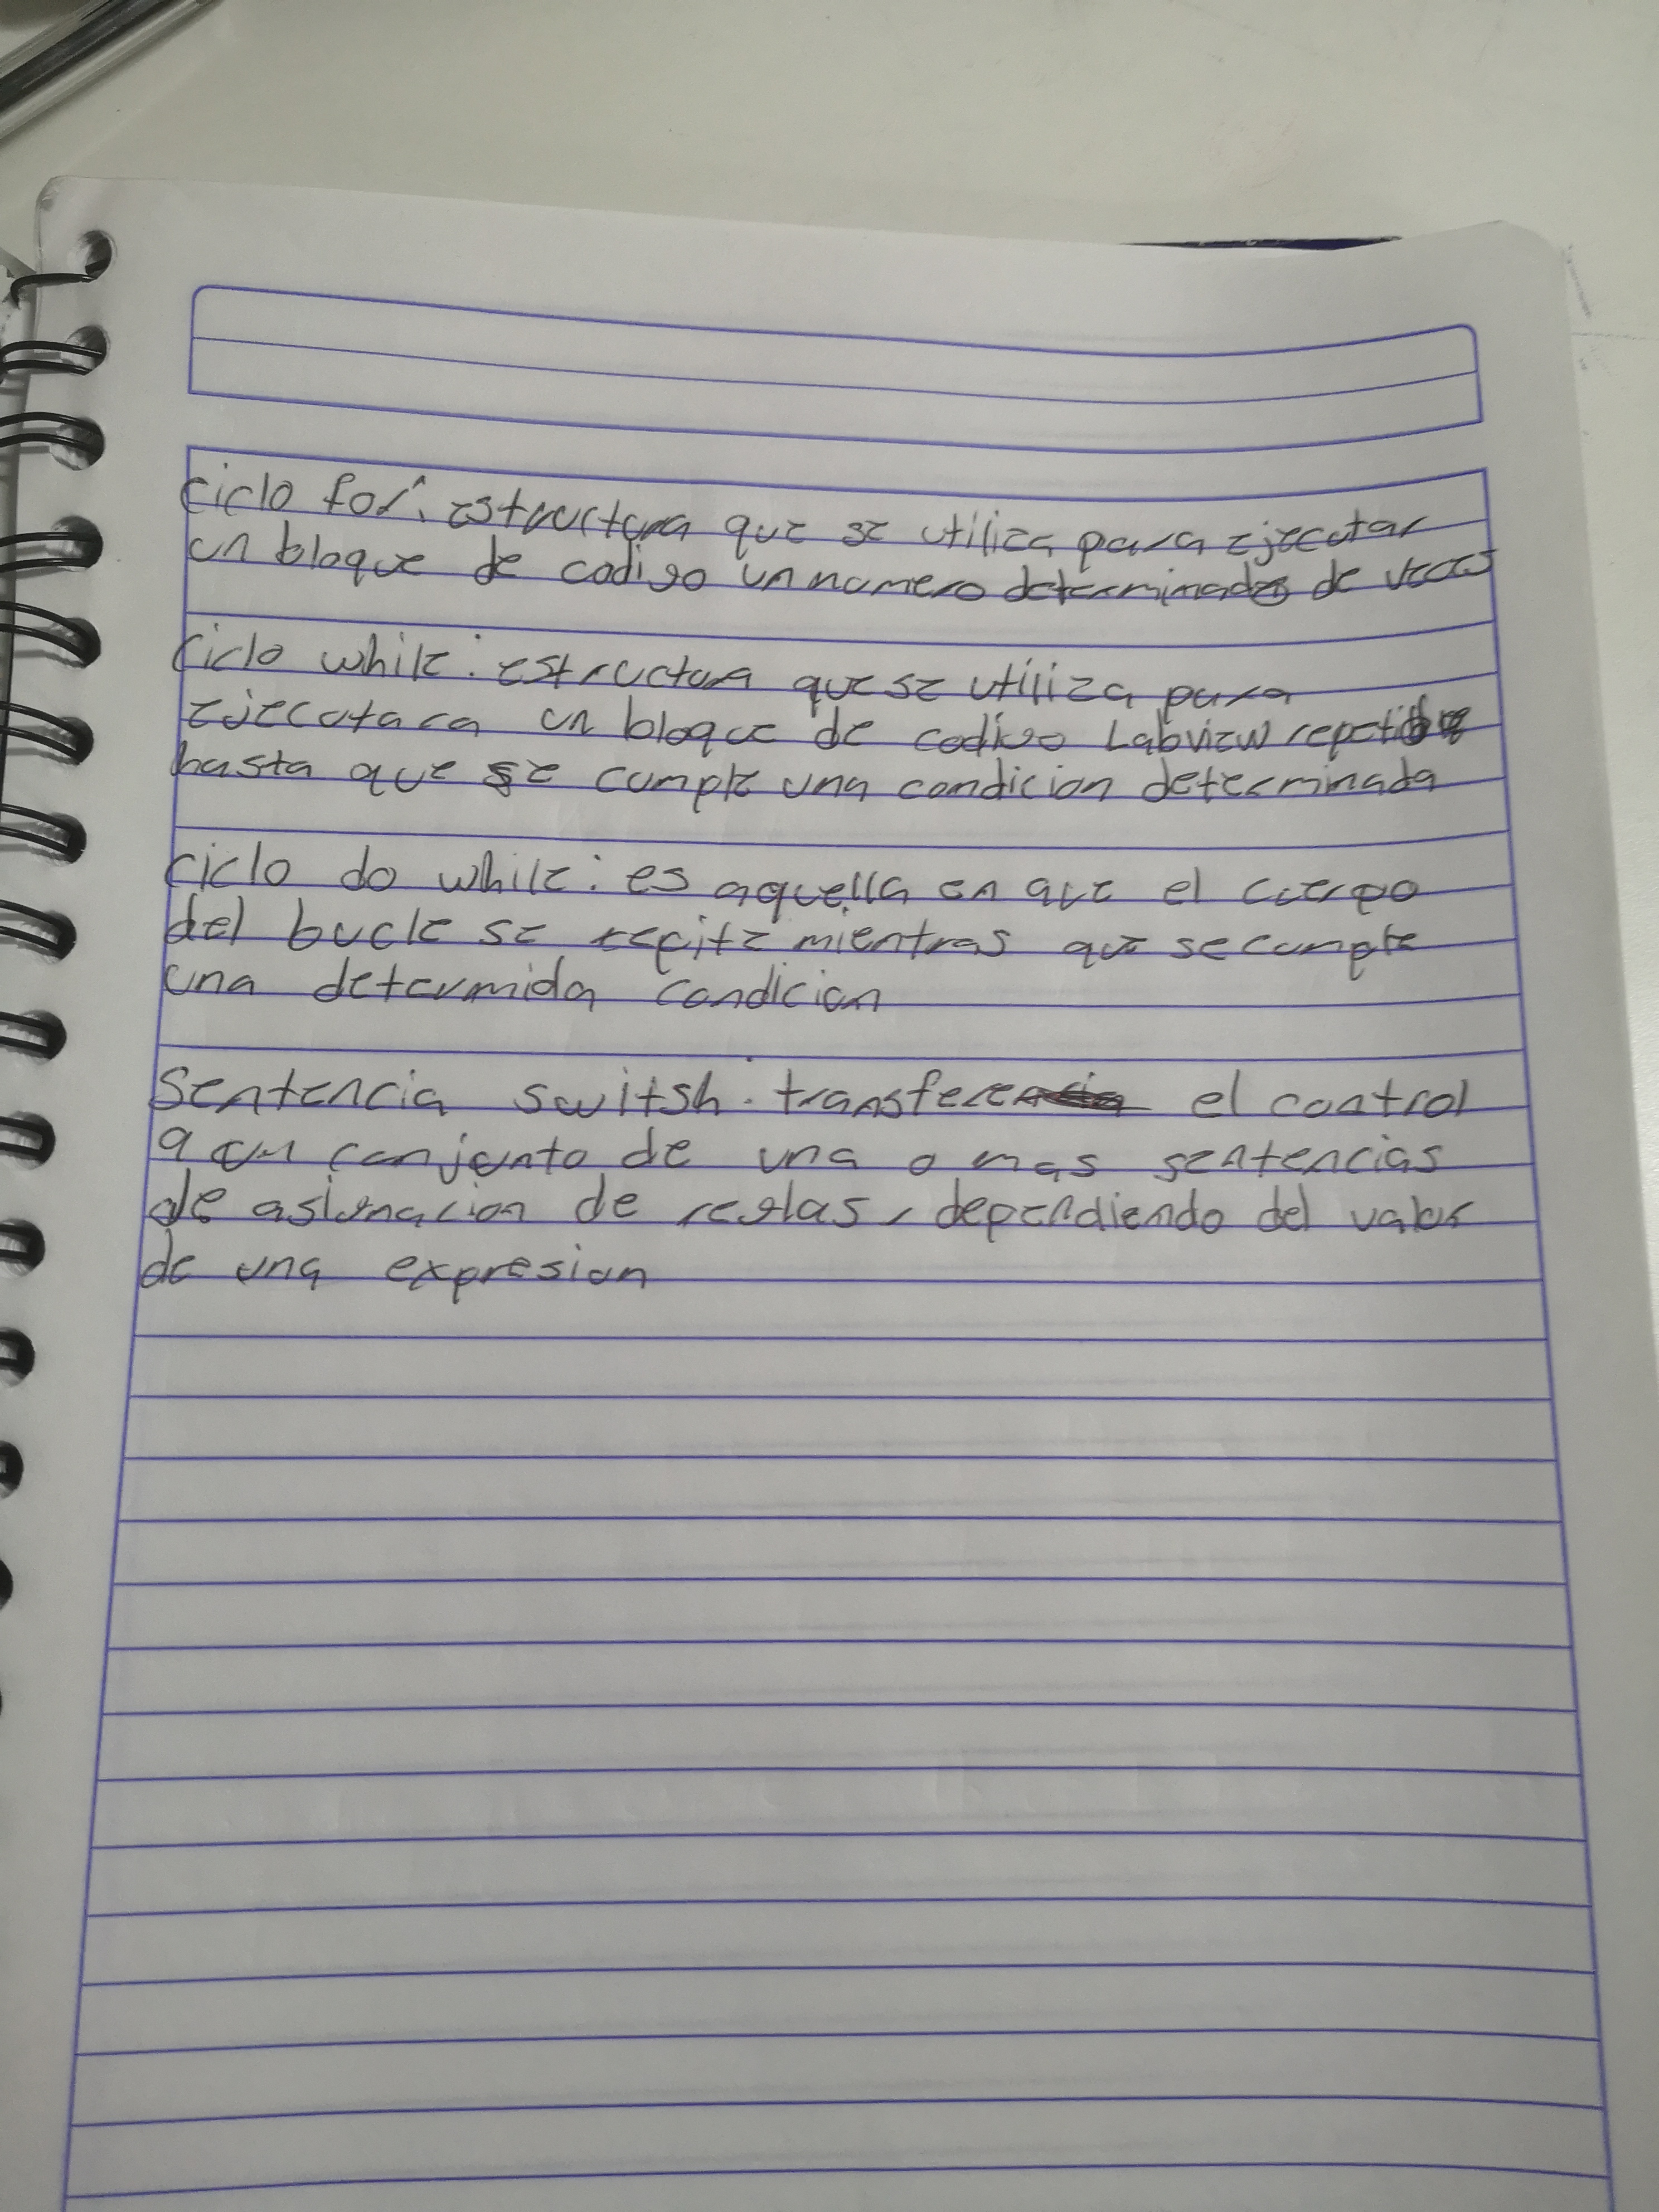 ciclo for: estructura que se utiliza para ejecutar
un bloque de codigo un numero determinado de veces
ciclo while: estructura que se utiliza para
ejecutara un bloque de codigo Labview
hasta que se cumple una condicion determinada
ciclo do while: es aquella en que el cuerpo
del bucle se repite mientras que se cumple
una determida condicion
Sentencia switsh: transfere el control
a un conjunto de una o mas sentencias
de asignacion de reglas, dependiendo del valor
de una expresion